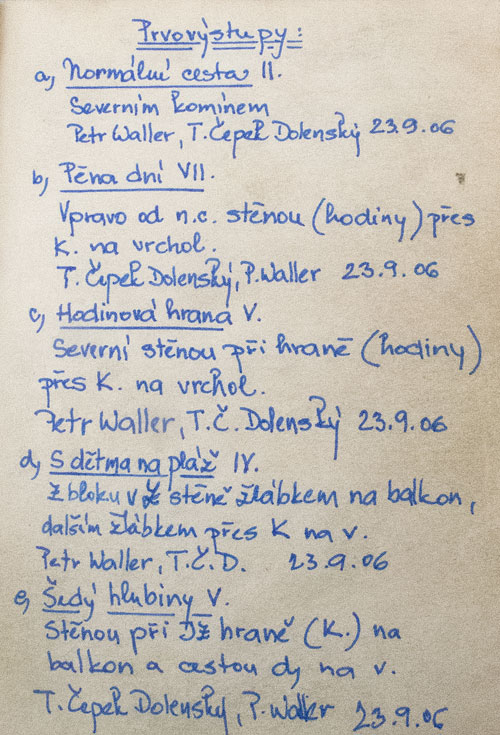 Prvovýstupy:
a, Normální cesta II.
Severním komínem
Petr Waller, T. Čepek Dolenský 23.9.06
b, Pěna dní VII.
Vpravo od n.c. stěnou (hodiny) přes
K. na vrchol.
T. Čepek Dolenský, P. Waller 23.9.06
c, Hodinová hrana V.
Severní stěnou při hraně (hodiny)
přes K. na vrchol.
Petr Waller, T.Č. Dolenský 23.9.06
d, S dětma na pláž IV.
Z bloku v Z stěně žlábkem na balkon,
dalším žlábkem přes K na v.
Petr Waller, T.Č.D. 23.9.06
e, Šedý hlubiny V.
Stěnou při JZ hraně (K.) na
balkon a cestou d, na v.
T. Čepek Dolenský, P. Waller 23.9.06